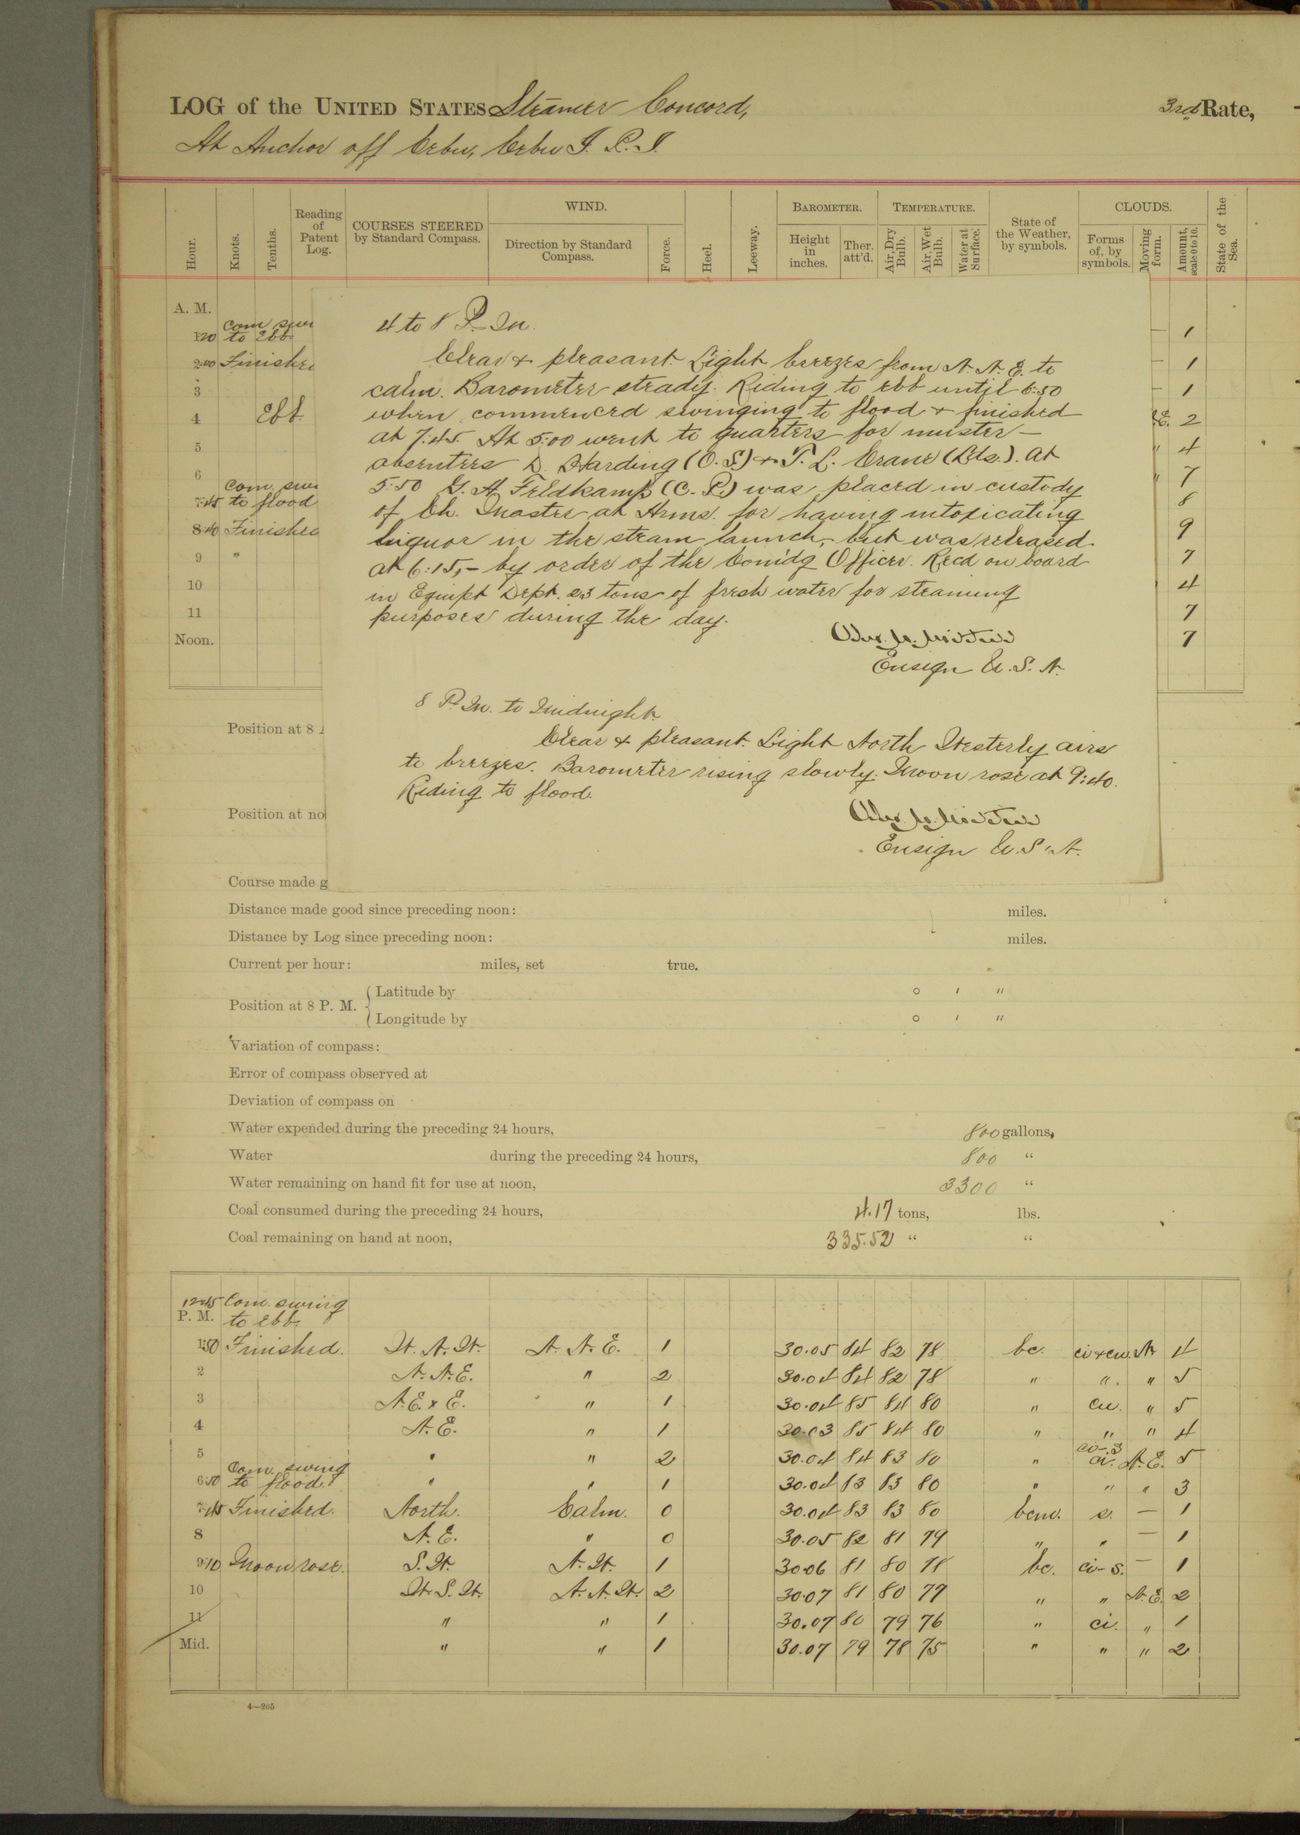 LOG of the UNITED STATES Steamer Concord, 3rd Rate,
At Anchor off Cebu, Cebu I. P. I.
Hour. Knots. Tenths. Reading of Patent Log. COURSES STEERED by Standard Compass. WIND. Direction by Standard Compass. Force. Heel. Leeway. BAROMETER. Height in inches. Ther. att'd. TEMPERATURE. Air, Dry Bulb. Air, Wet Bulb. Water at Surface. State of the Weather, by symbols. CLOUDS. Forms of, by symbols. Moving form. Amount, scale 0 to 10. State of the Sea.
A. M.
Com. swi
to Ebb — 1
Finished — 1
3 — 1
4 Ebb. 2
5 " 4
6 " 7
Com. swi
to flood 8
Finished 9
9 " 7
10 4
11 7
Noon. 7
4 to 8 P. M.
Clear & pleasant. Light breezes from N. N. E. to
calm. Barometer steady. Riding to ebb until 6:50
when commenced swinging to flood & finished
at 7:45. At 5:00 went to quarters for muster —
absentees D. Harding (O. S.) & T. L. Crane (Lds.). At
5:50 G. A. Feldkamp (C. P.) was placed in custody
of Ch. Master at Arms. for having intoxicating
liquor in the steam launch, but was released
at 6:15, — by order of the Com'd'g Officer. Rec'd on board
in Equipt Dept. 23 tons of fresh water for steaming
purposes during the day.
Ensign U. S. N.
8 P. M. to Midnight
Clear & pleasant. Light North Westerly airs
to breezes. Barometer rising slowly. Moon rose at 9:40.
Riding to flood.
Ensign U. S. N.
Position at 8 A
Position at no
Course made g
Distance made good since preceding noon: miles.
Distance by Log since preceding noon: miles.
Current per hour: miles, set true.
Position at 8 P. M. Latitude by ° ' "
Longitude by ° ' "
Variation of compass:
Error of compass observed at
Deviation of compass on
Water expended during the preceding 24 hours, 800 gallons,
Water during the preceding 24 hours, 800 "
Water remaining on hand fit for use at noon, 3300 "
Coal consumed during the preceding 24 hours, 4.17 tons, lbs.
Coal remaining on hand at noon, 335.52 " "
12:45 Com. swing
P. M. to ebb.
1:50 Finished. W. N. W. N. N. E. 1 30.05 84 82 78 bc. ci & cu. N. 4
2 N. N. E. " 2 30.04 84 82 78 " " " 5
3 N. E. x E. " 1 30.04 85 84 80 " cu. " 5
4 N. E. " 1 30.03 85 84 80 " " " 4
5 " " 2 30.04 84 83 80 " N. E. 5
Com. swing
6:50 to flood. " " 1 30.04 83 83 80 " " " 3
7:45 Finished. North. Calm. 0 30.04 83 83 80 bcm. s. — 1
8 N. E. " 0 30.05 82 81 79 " " — 1
9:10 Moon rose. S. W. N. W. 1 30.06 81 80 78 bc. ci-s. — 1
10 W. S. W. N. N. W. 2 30.07 81 80 77 " " N. E. 2
11 " " 1 30.07 80 79 76 " ci. " 1
Mid. " " 1 30.07 79 78 75 " " " 2
4—205